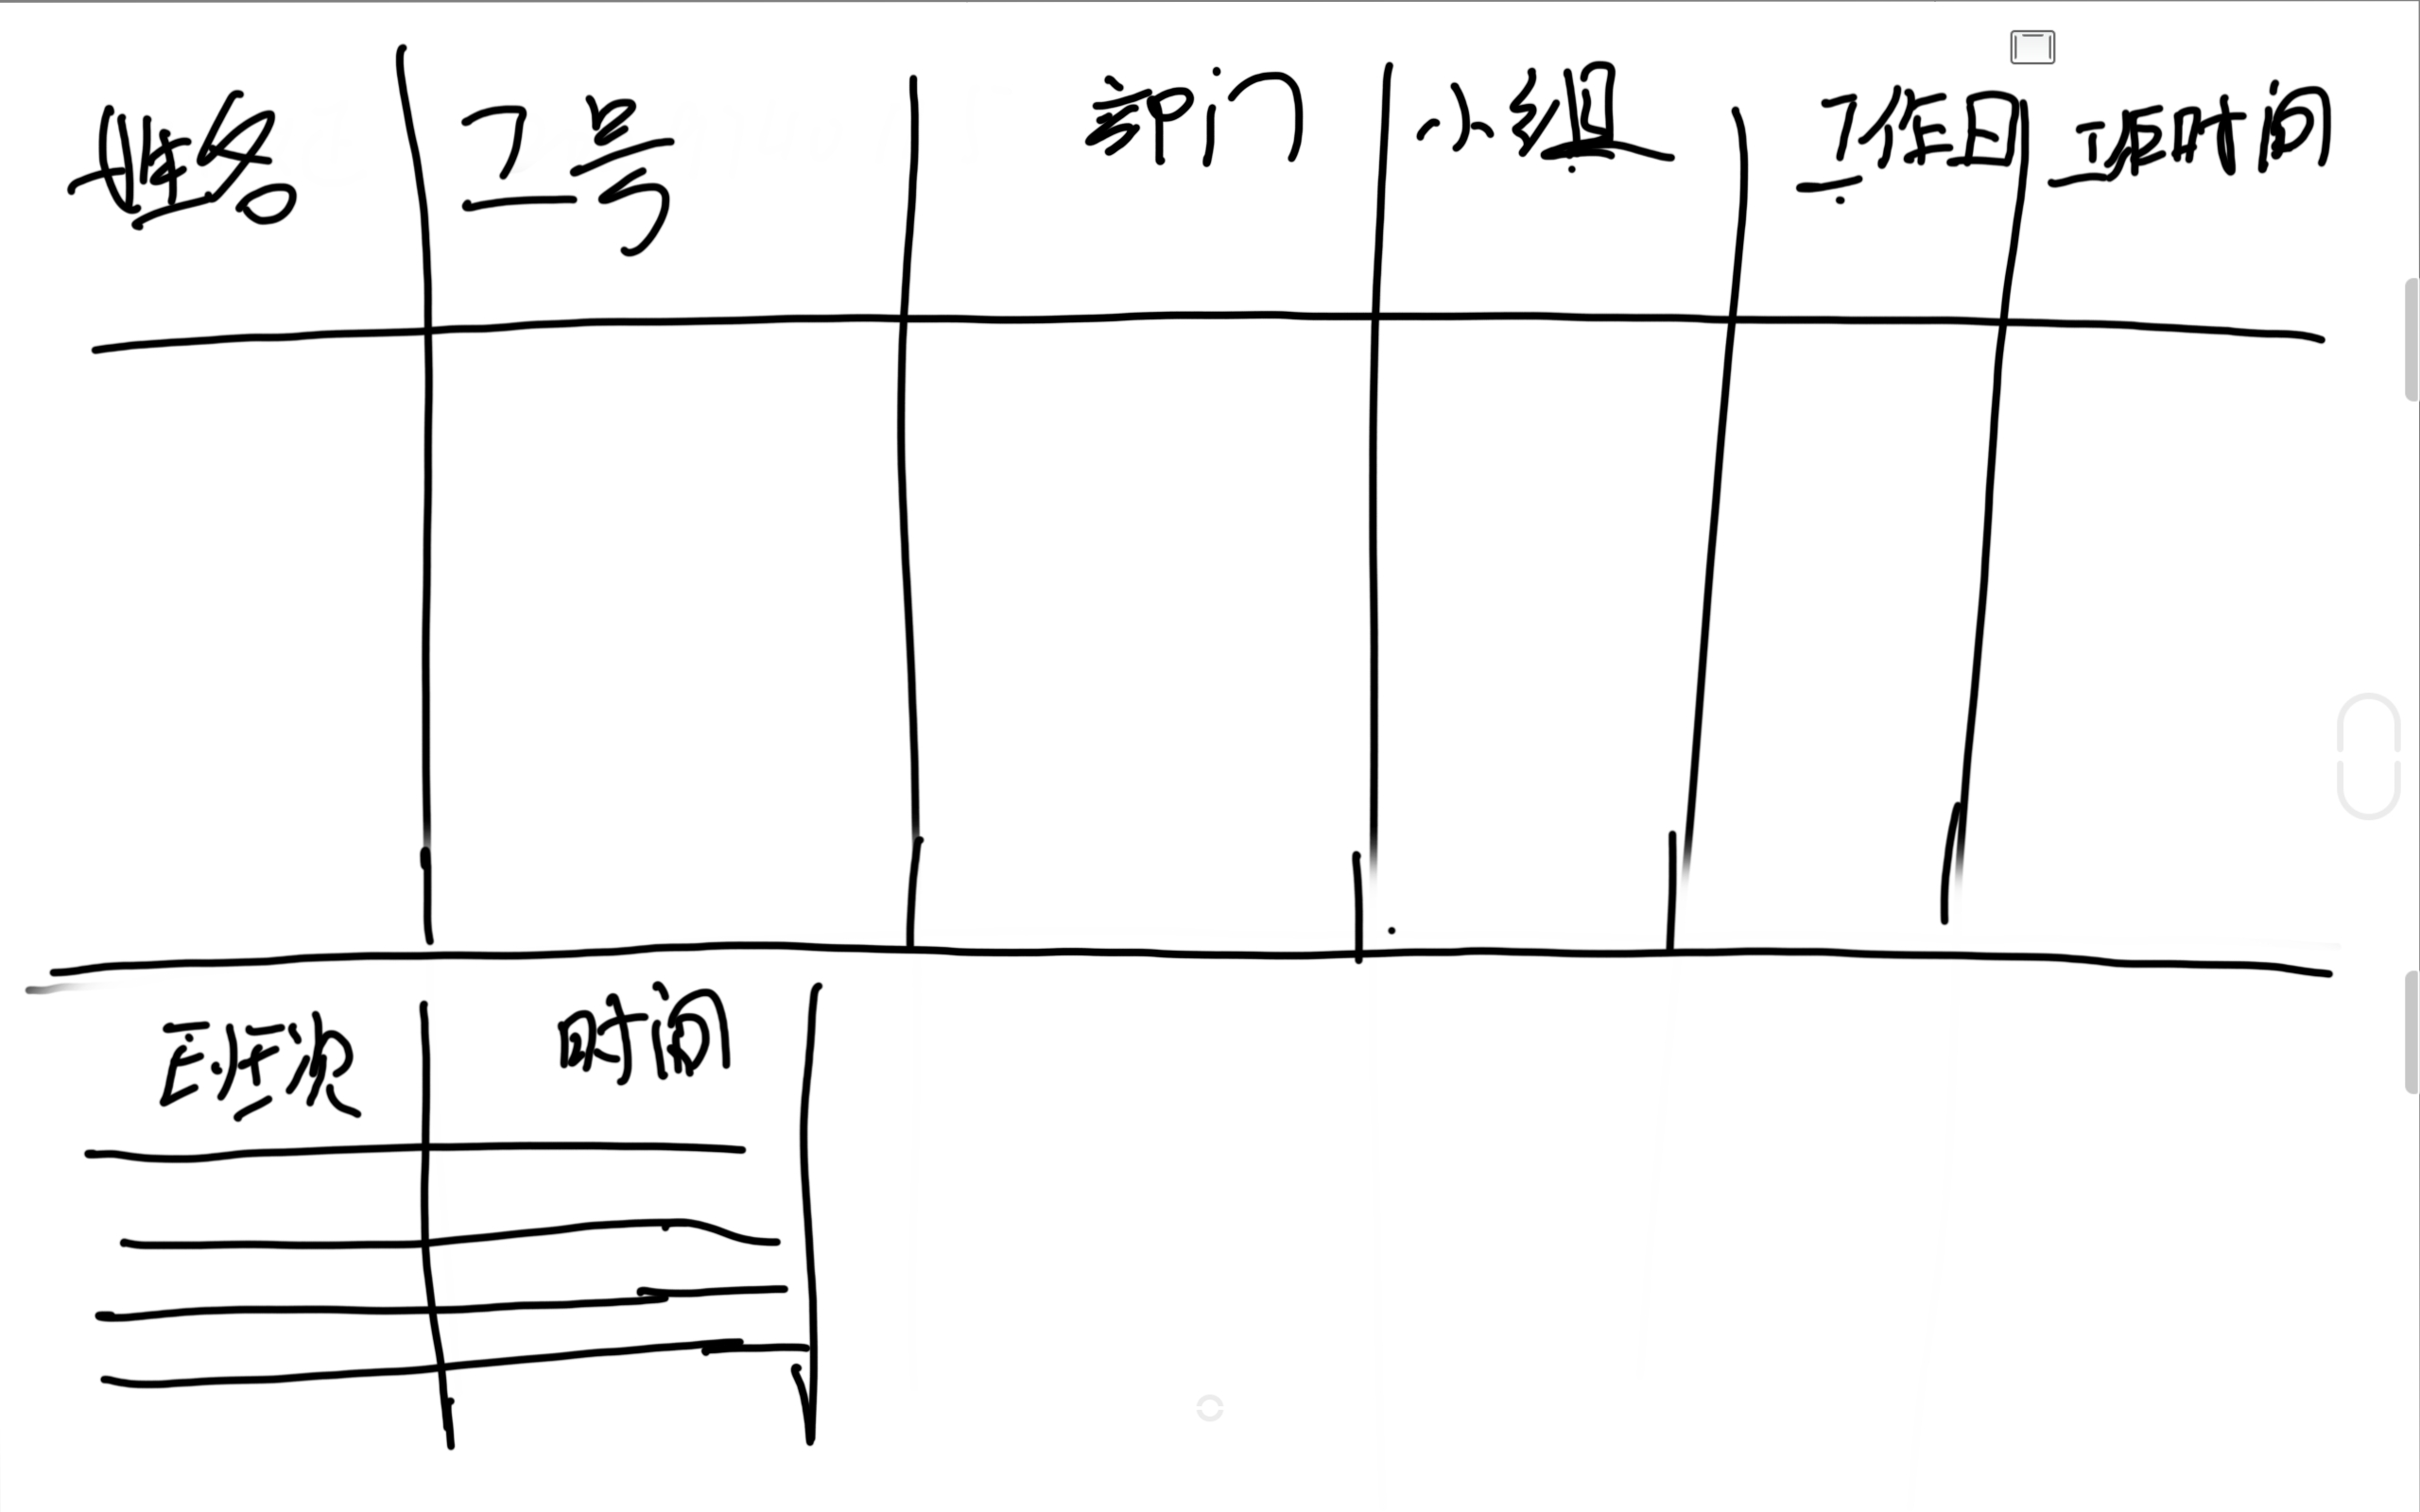 姓名 工号 部门 小组 工作日 班时间
班次 时间